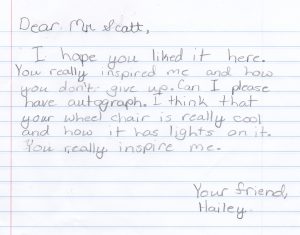 Dear Mr Scott,
I hope you liked it here.
You really inspired me and how
you don't give up. Can I please
have autograph. I think that
your wheel chair is really cool
and how it has lights on it.
You really inspire me.
Your friend,
Hailey